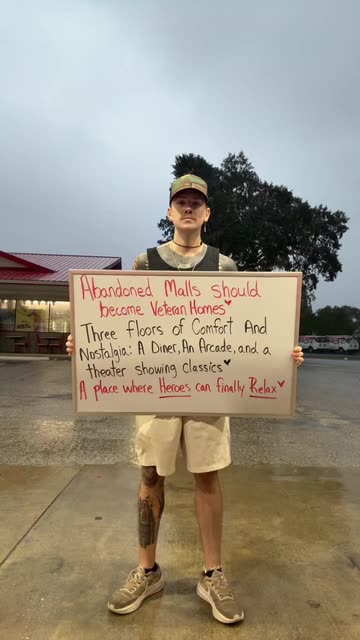 Abandoned Malls should
become Veteran Homes♥
Three floors of Comfort And
Nostalgia: A Diner, An Arcade, and a
theater showing classics♥
A place where Heroes can finally Relax♥